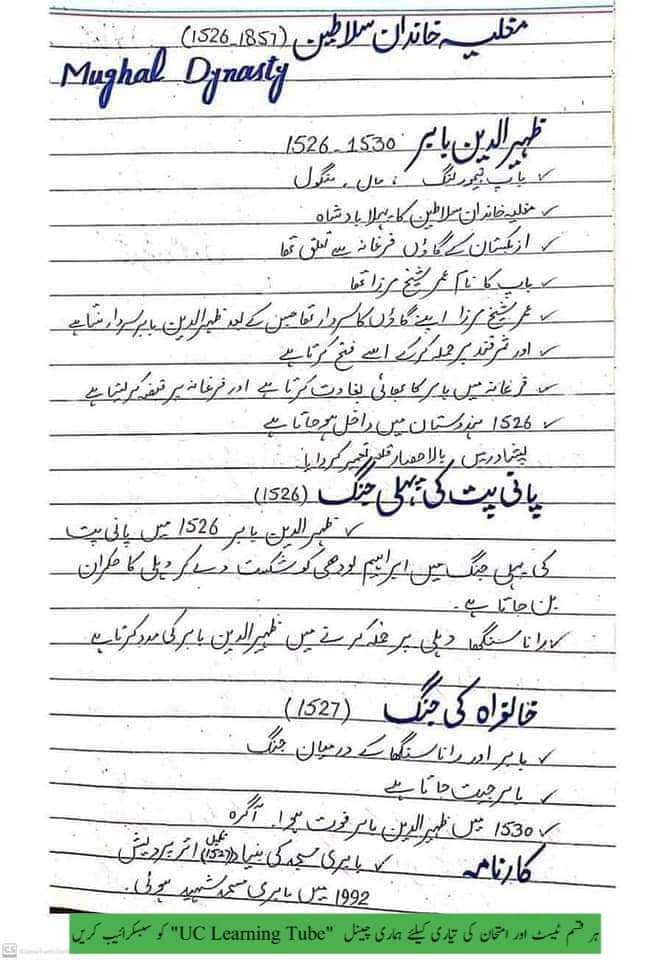 مغلیہ خاندان سلاطین (1526-1857)
Mughal Dynasty
ظہیر الدین بابر 1526-1530
✓ باپ تیمور لنگ، ماں، منگول
✓ مغلیہ خاندان سلاطین کا پہلا بادشاہ
✓ ازبکستان کے گاؤں فرغانہ سے تعلق تھا
✓ باپ کا نام عمر شیخ مرزا تھا
✓ عمر شیخ مرزا اپنے گاؤں کا سردار تھا جس کے بعد ظہیر الدین بابر سردار بنتا ہے
✓ اور ثمرقند پر حملہ کرکے اسے فتح کرتا ہے
✓ فرغانہ میں بابر کا بھائی بغاوت کرتا ہے اور فرغانہ پر قبضہ کرلیتا ہے
✓ 1526 ہندوستان میں داخل ہو جاتا ہے
پشاور میں بالا حصار قلعہ تعمیر کروایا۔
پانی پت کی پہلی جنگ (1526)
✓ ظہیر الدین بابر 1526 میں پانی پت
کی پہلی جنگ میں ابراہیم لودھی کو شکست دے کر دہلی کا حکمران
بن جاتا ہے۔
✓ رانا سنگھا دہلی پر حملہ کرنے میں ظہیر الدین بابر کی مدد کرتا ہے
کی جنگ (1527)
✓ بابر اور رانا سنگھا کے درمیان جنگ
✓ بابر جیت جاتا ہے
✓ 1530 میں ظہیر الدین بابر فوت ہوا۔ آگرہ
کارنامہ ✓ بابری مسجد کی بنیاد (1527) اتر پردیش
1992 میں بابری مسجد شہید ہوئی۔
ہر قسم ٹیسٹ اور امتحان کی تیاری کیلئے ہماری چینل "UC Learning Tube" کو سبسکرائیب کریں
CS